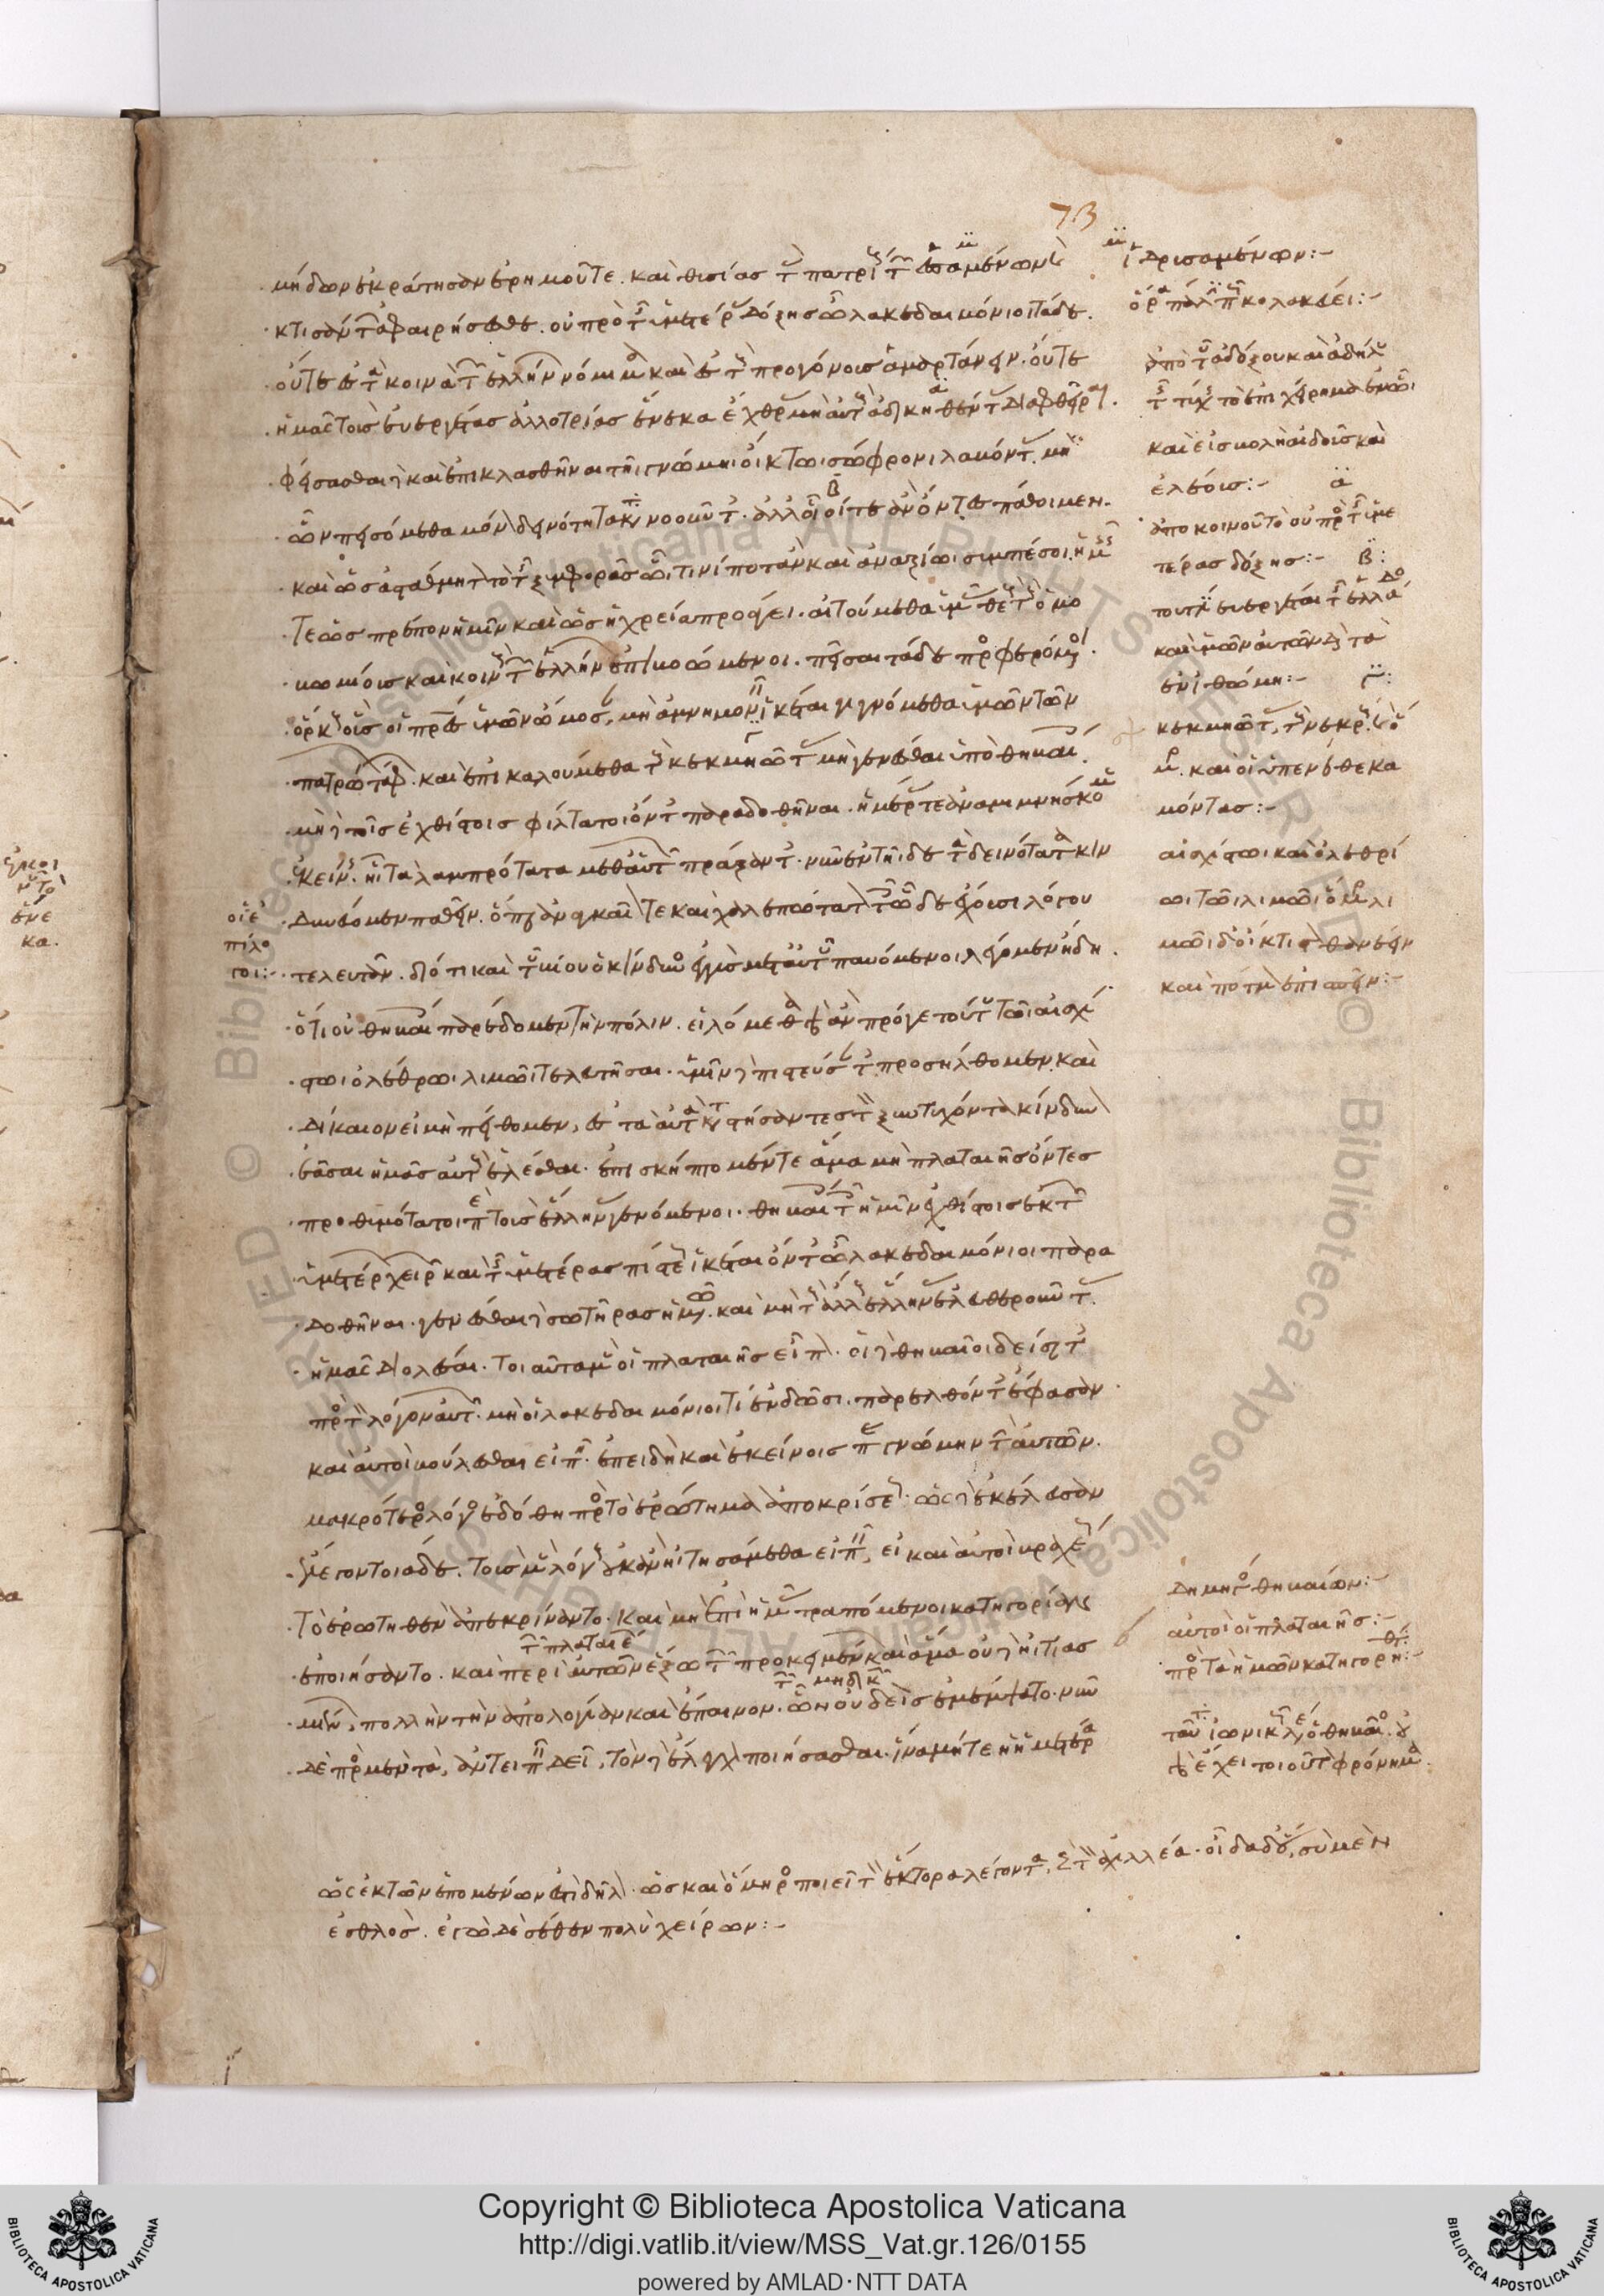 73
μήδων ἐκράτησαν ἐρημοῦτε. καὶ θυσίας τὰς πατρίους τῶν ἑσαμένων καὶ
κτισάντων ἀφαιρήσεσθε. οὐ πρὸς τῆς ὑμετέρας δόξης ὦ λακεδαιμόνιοι τάδε.
οὔτε ἐς τὰ κοινὰ τῶν ἑλλήνων νόμιμα καὶ ἐς τοὺς προγόνους ἁμαρτάνειν. οὔτε
ἡμᾶς τοὺς εὐεργέτας ἀλλοτρίας ἕνεκα ἔχθρας μὴ αὐτοὺς ἀδικηθέντας διαφθεῖραι.
φείσασθαι δὲ καὶ ἐπικλασθῆναι τῆι γνώμηι οἴκτωι σώφρονι λαβόντας. μὴ
ὧν πεισόμεθα μόνον δεινότητα κατανοοῦντας. ἀλλ' οἷοί τε ἂν ὄντες πάθοιμεν.
καὶ ὡς ἀστάθμητον τὸ τῆς ξυμφορᾶς ὧιτινί ποτ' ἂν καὶ ἀναξίωι ξυμπέσοι. ἡμεῖς
τε ὡς πρέπον ἡμῖν καὶ ὡς ἡ χρεία προάγει. αἰτούμεθα ὑμᾶς θεοὺς τοὺς ὁμο
βωμίους καὶ κοινοὺς τῶν ἑλλήνων ἐπιβοώμενοι. πεῖσαι τάδε προφερόμενοι.
ὅρκους οὓς οἱ πατέρες ὑμῶν ὤμοσαν, μὴ ἀμνημονεῖν ἱκέται γιγνόμεθα ὑμῶν τῶν
πατρώων τάφων. καὶ ἐπικαλούμεθα τοὺς κεκμηῶτας μὴ γενέσθαι ὑπὸ θηβαίοις.
μὴ δὲ τοῖς ἐχθίστοις φίλτατοι ὄντες παραδοθῆναι. ἡμέρας τε ἀναμιμνήσκομεν
ἐκείνης. ἧι τὰ λαμπρότατα μεθ' αὐτῶν πράξαντες. νῦν ἐν τῆιδε τὰ δεινότατα κιν
δυνεύομεν παθεῖν. ὅπερ δὲ ἀναγκαῖόν τε καὶ χαλεπώτατον τοῖς ὧδε ἔχουσι λόγου
τελευτᾶν. διότι καὶ τοῦ βίου ὁ κίνδυνος ἐγγὺς μετ' αὐτοῦ παυόμενοι λέγομεν ἤδη.
ὅτι οὐ θηβαίοις παρέδομεν τὴν πόλιν. εἱλόμεθα γὰρ ἂν πρό γε τούτου τῶι αἰσχί
στωι ὀλέθρωι λιμῶι τελευτῆσαι. ὑμῖν δὲ πιστεύσαντες προσήλθομεν. καὶ
δίκαιον εἰ μὴ πείθομεν, ἐς τὰ αὐτὰ καταστήσαντες τὸν ξυντυχόντα κίνδυνον
ἐᾶσαι ἡμᾶς αὐτοὺς ἑλέσθαι. ἐπισκήπτομέν τε ἅμα μὴ πλαταιῆς ὄντες
προθυμότατοι περὶ τοὺς ἕλληνας γενόμενοι. θηβαίοις τοῖς ἡμῖν ἐχθίστοις ἐκ τῶν
ὑμετέρων χειρῶν καὶ τῆς ὑμετέρας πίστεως ἱκέται ὄντες ὦ λακεδαιμόνιοι παρα
δοθῆναι. γενέσθαι δὲ σωτῆρας ἡμῶν. καὶ μὴ τοὺς ἄλλους ἕλληνας ἐλευθεροῦντας
ἡμᾶς διολέσαι. τοιαῦτα μὲν οἱ πλαταιῆς εἶπον. οἱ δὲ θηβαῖοι δείσαντες
πρὸς τὸν λόγον αὐτῶν μὴ οἱ λακεδαιμόνιοί τι ἐνδῶσι. παρελθόντες ἔφασαν
καὶ αὐτοὶ βούλεσθαι εἰπεῖν. ἐπειδὴ καὶ ἐκείνοις παρὰ γνώμην τὴν αὐτῶν.
μακρότερος λόγος ἐδόθη πρὸς τὸ ἐρώτημα ἀποκρίσεως. ὡς δὲ ἐκέλευσαν
ἔλεγον τοιάδε. τοὺς μὲν λόγους οὐκ ἂν ἠιτησάμεθα εἰπεῖν, εἰ καὶ αὐτοὶ βραχέως
τὸ ἐρωτηθὲν ἀπεκρίναντο. καὶ μὴ ἐπὶ ἡμᾶς τραπόμενοι κατηγορίαν
ἐποιήσαντο. καὶ περὶ αὐτῶν ἔξω τῶν προκειμένων καὶ ἅμα οὐδὲ ἠιτιασ
μένων, πολλὴν τὴν ἀπολογίαν καὶ ἔπαινον. ὧν οὐδεὶς ἐμέμψατο. νῦν
δὲ πρὸς μὲν τὰ, ἀντειπεῖν δεῖ, τῶν δὲ ἔλεγχον ποιήσασθαι. ἵνα μήτε ἡ ἡμετέρα
ἱδρυσαμένων:-
κολακεύει:-
ἀπὸ τοῦ ἀδόξου καὶ ἀδήλου
τῆς τύχης τὸ ἐπιχείρημα
ἐλέοις:-
ἀπὸ κοινοῦ τὸ οὐ πρὸς τῆς ὑμε
τέρας δόξης:-
μόντας:-
αἰσχίστωι καὶ ὀλεθρί
ωι τῶι λιμῶι
καὶ πότμον ἐπισπεῖν:-
οἱ ἐ
πίλο
ποι:-
Δημηγορία θηβαίων:-
αὐτοὶ οἱ πλαταιῆς:-
πρὸς τὰ ἡμῶν κατηγορη:-
ὡς ἐκ τῶν ἑπομένων ἐστὶ δῆλον. ὡς καὶ ὅμηρος ποιεῖ τὸν ἕκτορα λέγοντα, πρὸς τὸν ἀχιλλέα. οἶδα δ' ὅτι σὺ μὲν
ἐσθλὸς. ἐγὼ δὲ σέθεν πολὺ χείρων:-
Copyright © Biblioteca Apostolica Vaticana
http://digi.vatlib.it/view/MSS_Vat.gr.126/0155
powered by AMLAD·NTT DATA
BIBLIOTECA APOSTOLICA VATICANA
BIBLIOTECA APOSTOLICA VATICANA